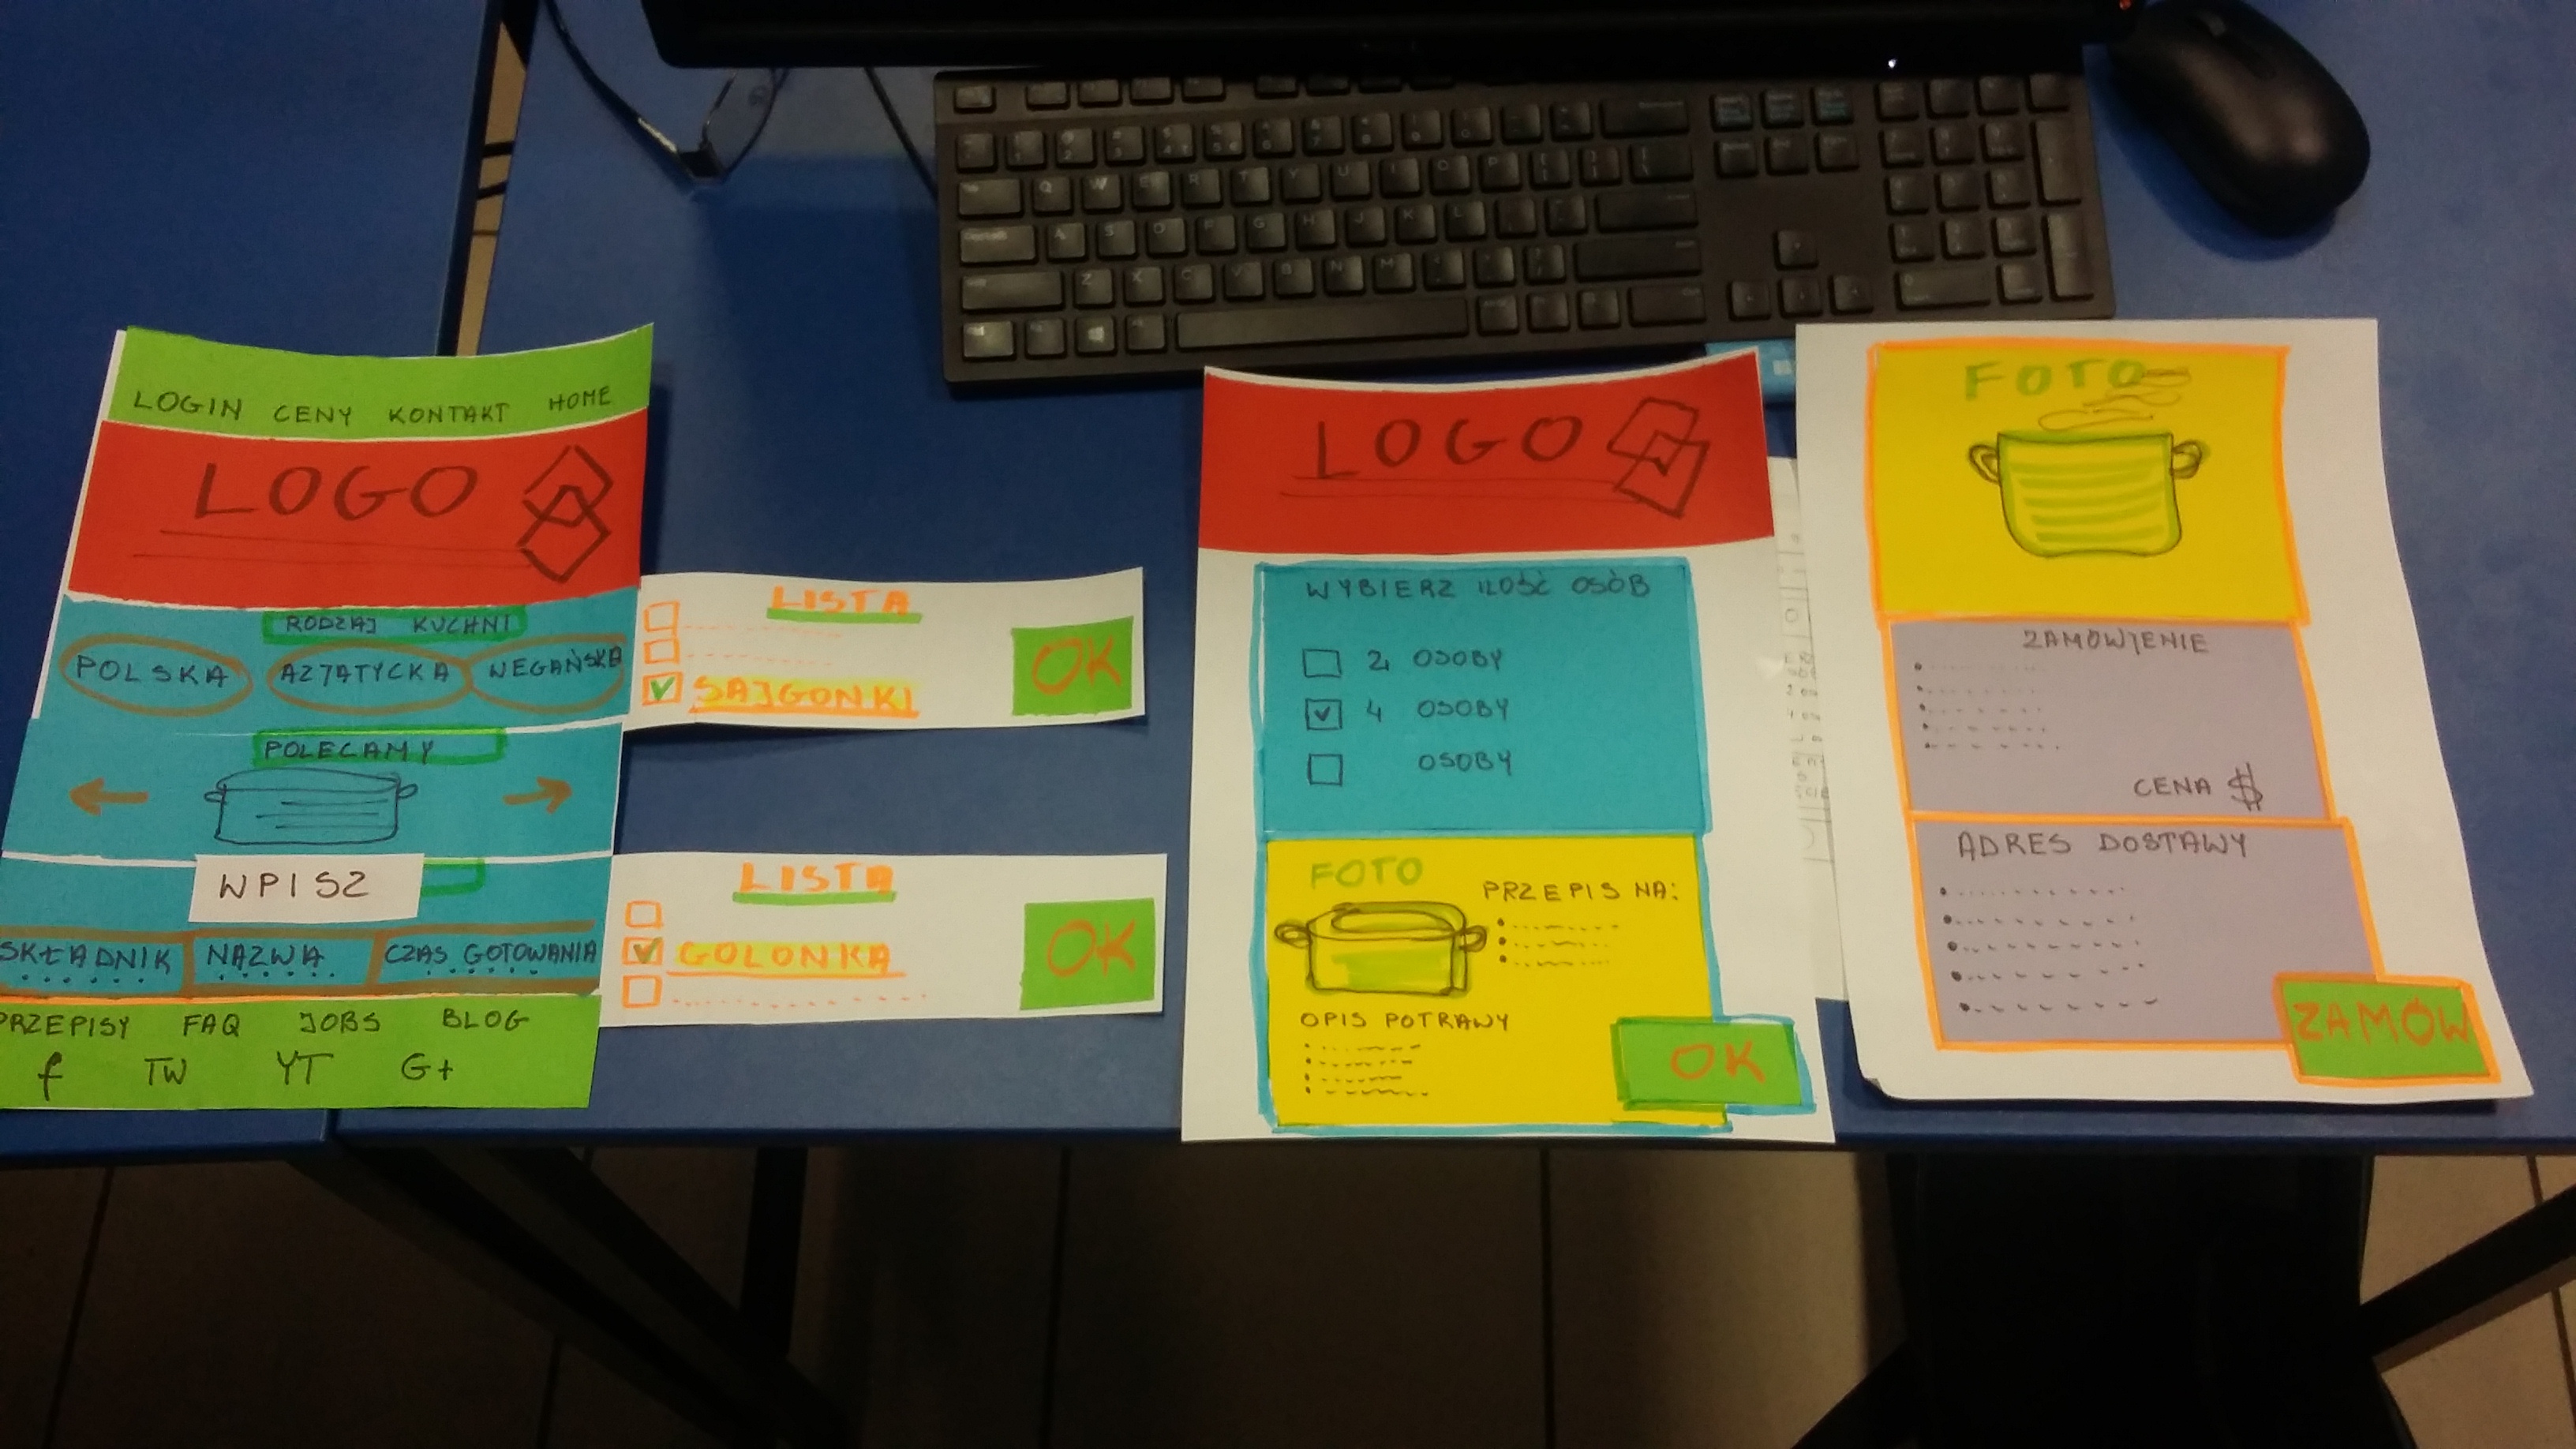 LOGIN CENY KONTAKT HOME
LOGO
RODZAJ KUCHNI
POLSKA AZJATYCKA WEGAŃSKA
POLECAMY
WPISZ
SKŁADNIK NAZWA CZAS GOTOWANIA
PRZEPISY FAQ JOBS BLOG
f TW YT G+
LISTA
SAJGONKI
OK
LISTA
GOLONKA
OK
LOGO
WYBIERZ ILOŚĆ OSÓB
2 OSOBY
4 OSOBY
OSOBY
FOTO
PRZEPIS NA:
OPIS POTRAWY
OK
FOTO
ZAMÓWIENIE
CENA $
ADRES DOSTAWY
ZAMÓW